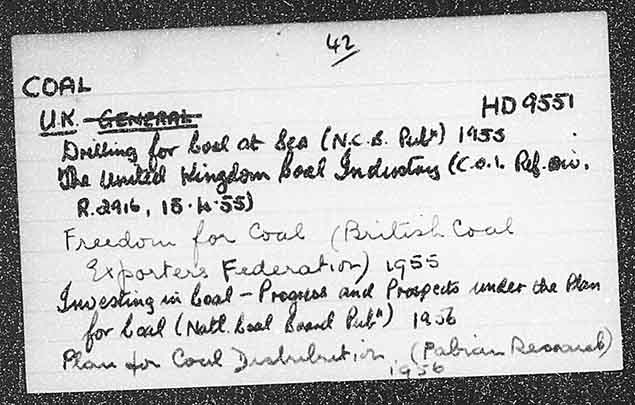 42
COAL
U.K. GENERAL HD 9551
Drilling for Coal at Sea (N.C.B. Pubn) 1955
The United Kingdom Coal Industry (C.O.I. Ref. Div.
R.2916, 15.4.55)
Freedom for Coal (British Coal
Exporters Federation) 1955
Investing in Coal - Progress and Prospects under the Plan
for Coal (Natl. Coal Board Pubn) 1956
Plan for Coal Distribution. (Fabian Research)
1956